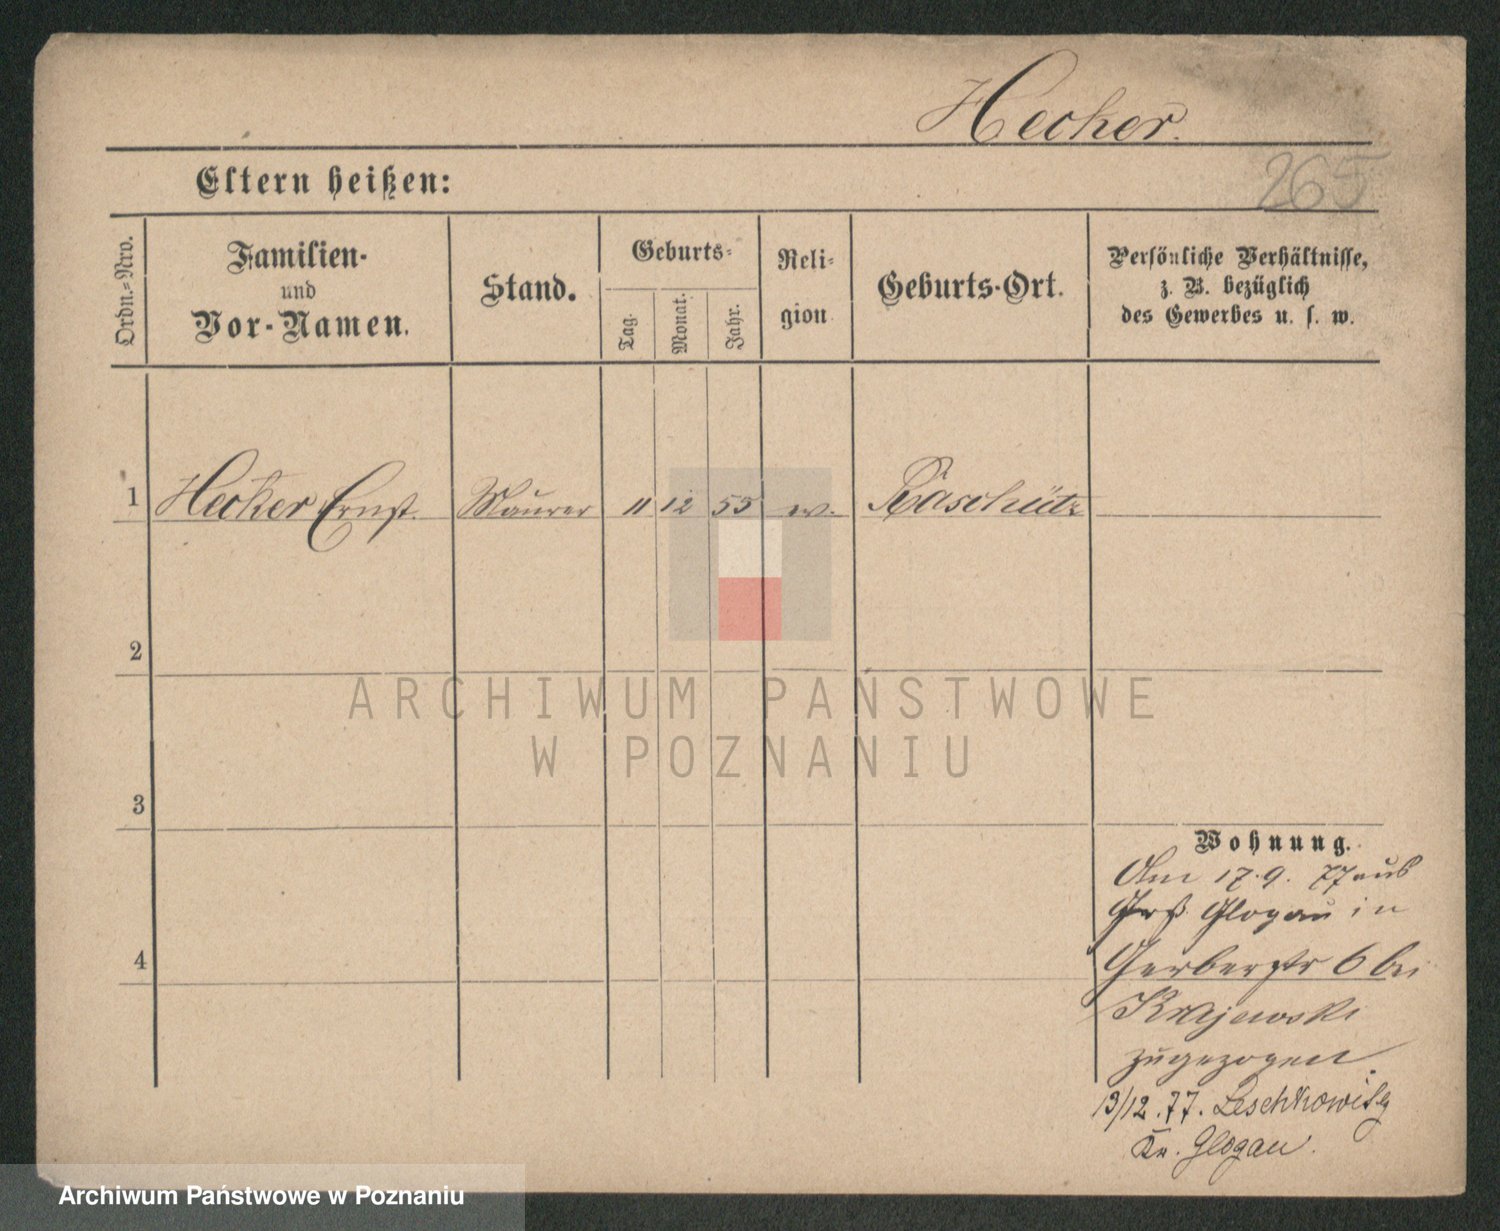 Hecker.
265
Eltern heißen:
Ordn.-Nro.
Familien-
und
Vor-Namen.
Stand.
Geburts-
Tag.
Monat.
Jahr.
Reli-
gion
Geburts-Ort.
Persönliche Verhältnisse,
z. B. bezüglich
des Gewerbes u. s. w.
1 Hecker Ernst. Maurer 11 12 55 ev. Raschütz
2
ARCHIWUM PAŃSTWOWE
W POZNANIU
3
Wohnung.
Am 17.9.77 aus
Glogau in
4
Gerberstr 6 bei
Krajewski
zugezogen.
13/12.77. Leschkowitz
Kr. Glogau.
Archiwum Państwowe w Poznaniu